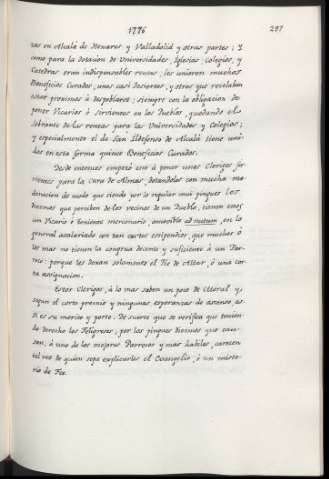 1776 297
cas en Alcalá de Henares y Valladolid y otras partes; y
como para la dotacion de Universidades, Iglesias Colegios, y
Catedras eran indispensables rentas, les unieron muchos
Beneficios Curados, unos casi desiertos, y otros que rezelaban
estar proximos à despoblarse: siempre con la obligacion de
poner Vicarios ó Sirvientes en los Pueblos, quedando el
sobrante de las rentas para las Universidades y Colegios;
y especialmente el de San Ildefonso de Alcalá tiene uni-
dos en esta forma quince Beneficios Curados.
Desde entonces empezó esto á poner unos Clerigos
para la Cura de Almas, dotandolos con mucha mo-
deracion de modo que siendo por lo regular mui pingues los
Diezmos que perciben de los vecinos de un Pueblo, tienen en el
un Vicario ó teniente mercenario, amovible ad nutum, en lo
general asalariado con tan cortos estipendios, que muchos ó
los mas no tienen la congrua decente y suficiente á un Par-
roco: porque les dexan solamente el Pie de Altar, ó una cor-
ta asignacion.
Estos Clerigos, á lo mas saben un poco de Moral y,
segun el corto premio y ningunas esperanzas de ascenso, as-
si es su merito y porte. De suerte que se verifica que tenien-
do derecho los Feligreses, por los pingues Diezmos que cau-
san, à uno de los mejores Parrocos y mas habiles, carecen
tal vez de quien sepa explicarles el Evangelio, ó un miste-
rio de Fee.